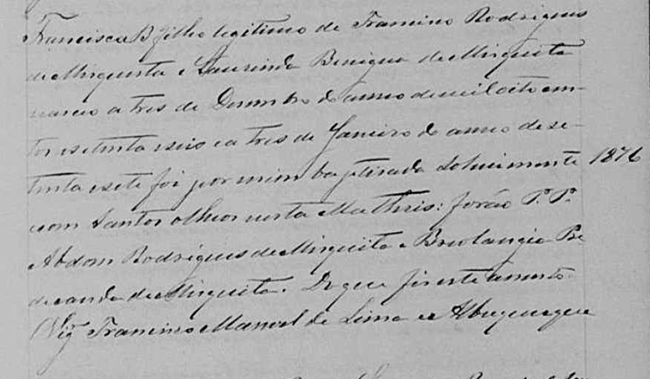 Francisca B filho legitimo de Francino Rodrigues
de Misquita e Laurinda Benigna de Misquita
nasceo a tres de Desembro do anno de mil oito cen-
tos setenta e seis e a tres de Janeiro do anno de se-
tenta e sete foi por mim baptisada solenimente 1876
com Santos olhios nesta Mathris: forão P.P.
Abdom Rodrigues de Misquita e Br
de Misquita. De que fis este assento.
O Vigº Francisco Manoel de Lima e Albuquerque